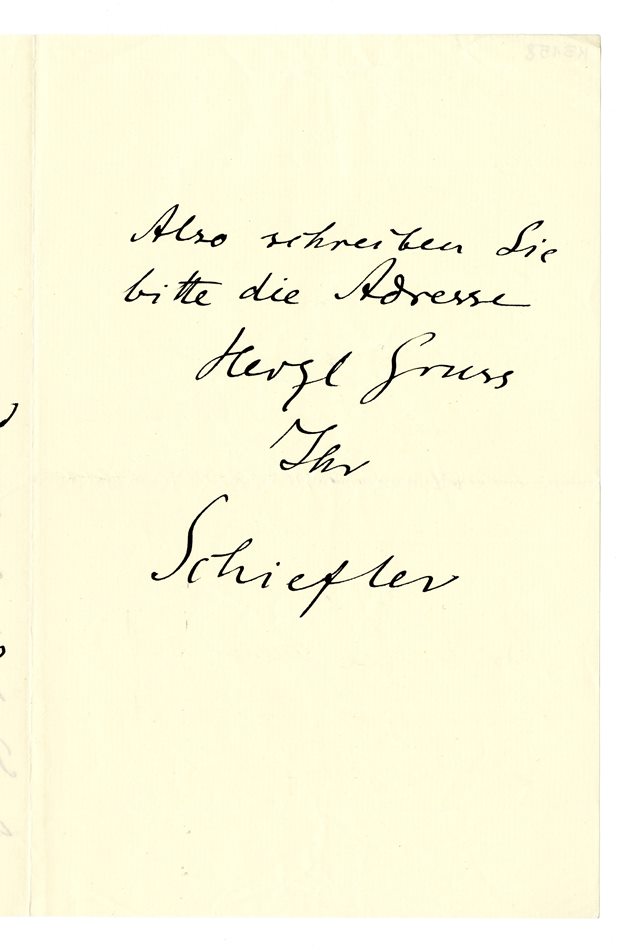 Also schreiben Sie
bitte die Adresse
Herzl Gruss
Ihr
Schiefler